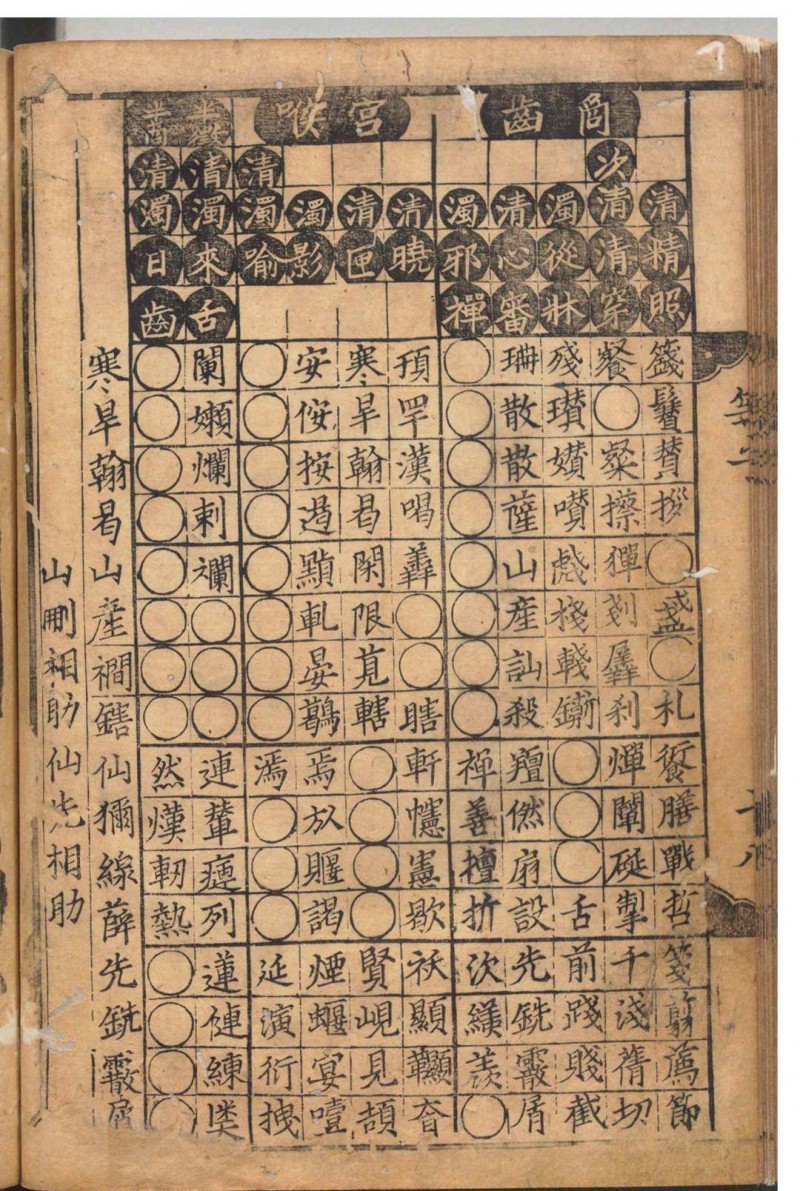 第二
十八
商齒
清精照籛賛拶○盞○札膳戰哲箋翦薦節
次清清穿餐○粲擦剗羼刹燀闡硟掣千淺蒨切
濁從牀殘瓚囋虥棧轏○○○舌前踐賤截
清心審珊散散薩山産訕殺羶扇設先銑霰屑
濁邪禪○○○○○○○○禪善擅折次羨○
宮喉
清曉頇罕漢喝羴○○瞎軒幰憲歇祅顯韅
清匣寒旱翰曷閑限莧轄○○○○賢峴見頡
濁影安侒按遏黰軋晏鶡焉㫃謁煙蝘宴噎
清濁喻○○○○○○○○漹○○○延演衍拽
半徵半商
清濁來舌闌嬾爛剌斕○○○連輦列蓮僆練
清濁日齒○○○○○○○○然熯軔熱○○○○
寒旱翰曷山産襇鎋仙獮線薛先銑霰屑
山刪相助仙先相助